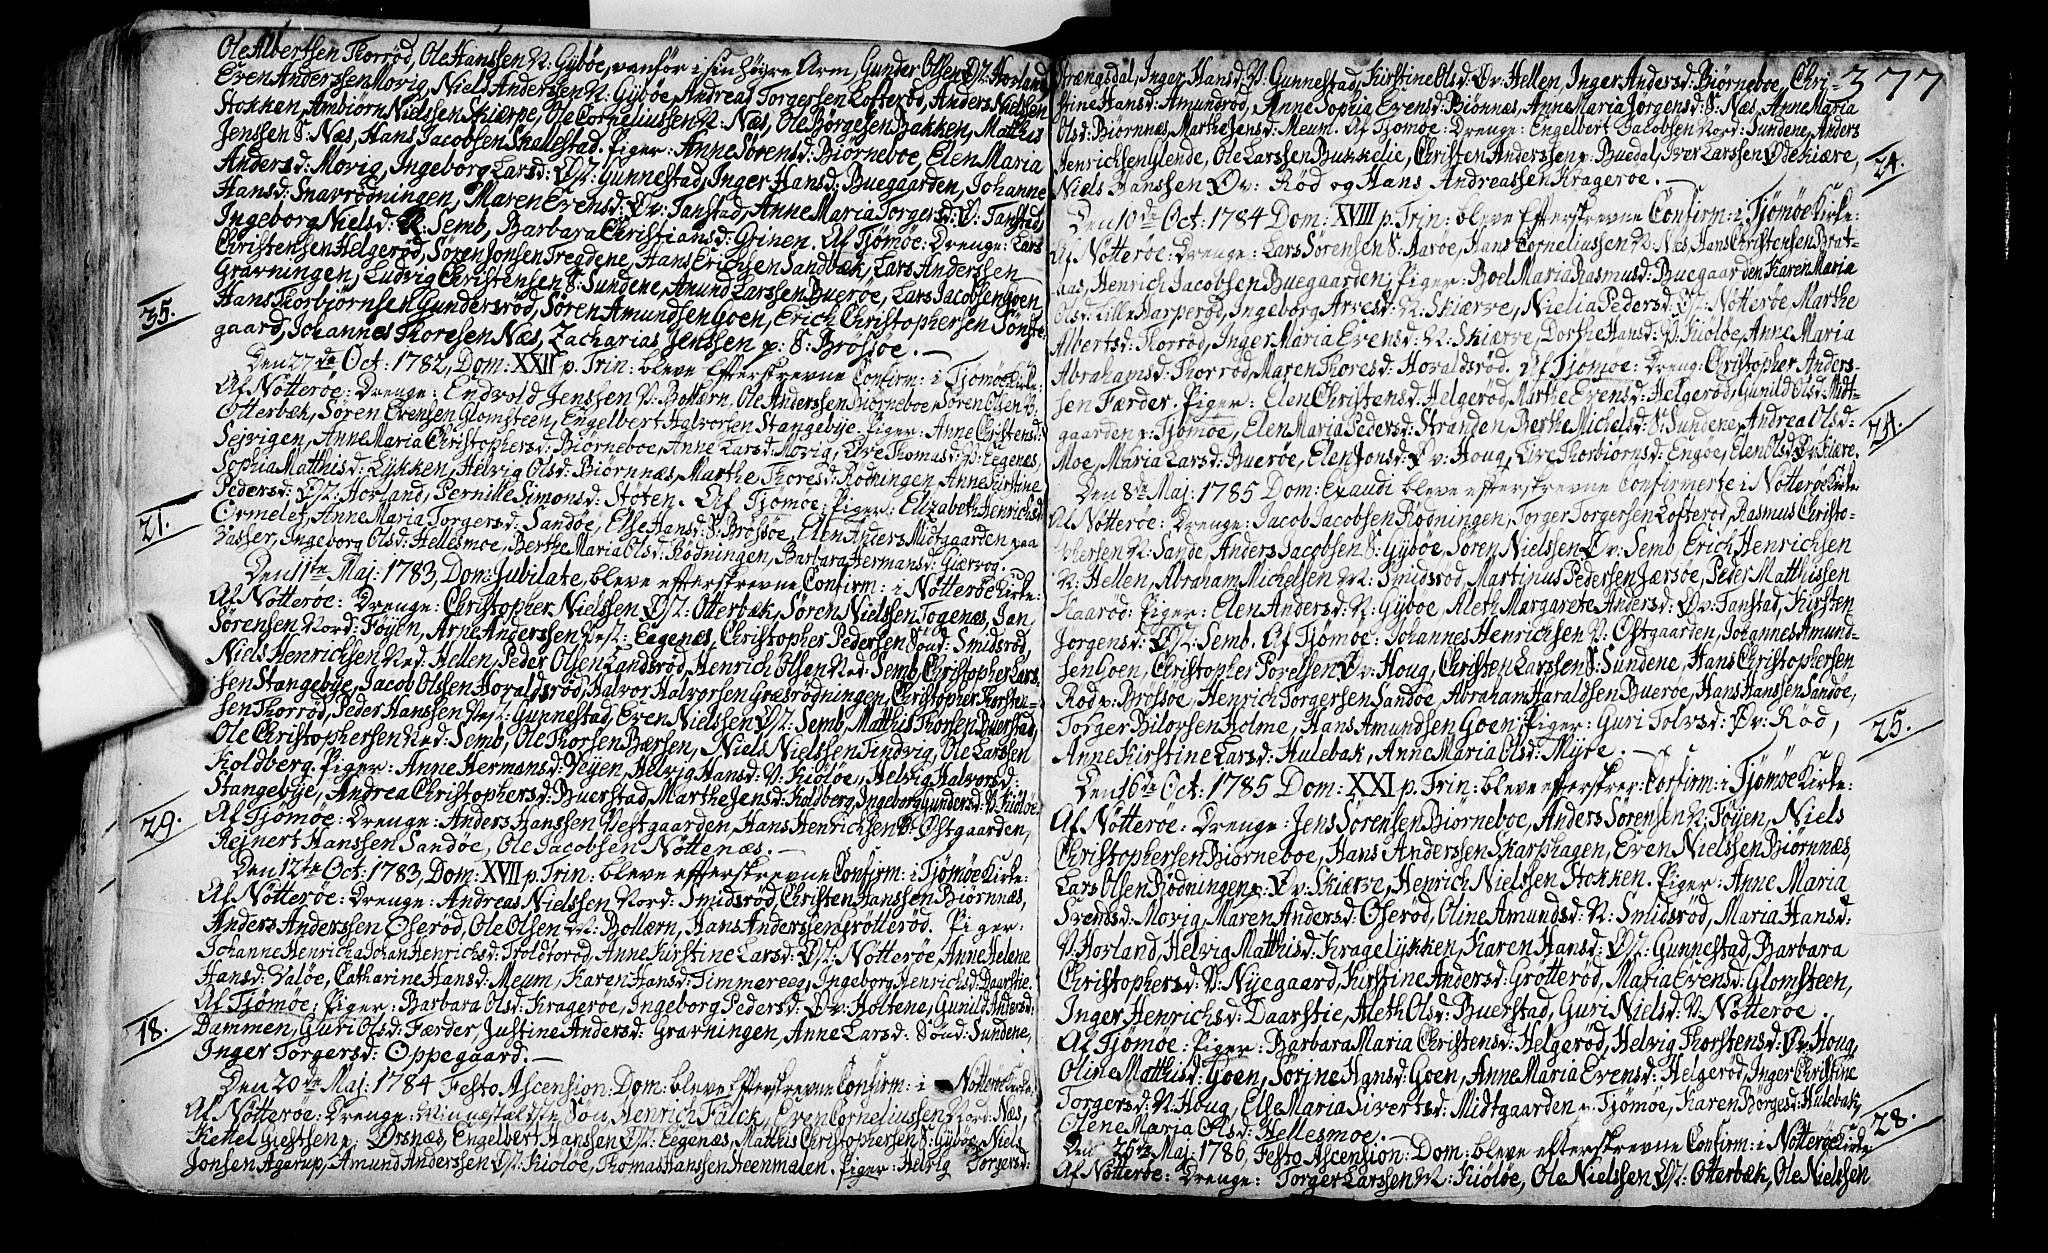 Ole Albertsen Thorrød, Ole Hanssen N: Gyböe, vanför i sin höyre Arm, Gunder Olsen Øst: Horland
Even Anderssen Movig, Niels Andersen N: Gyböe, Andreas Torgersen Lofterød, Anders Nielssen
Stokken, Ambiörn Nielssen Skiærpe, Ole Corneliussen N: Næs, Ole Börgesen Bakken, Matthis
Jenssen S: Næs, Hans Jacobsen Skallestad. Piger: Anne Sörensd: Biörneboe, Elen Maria
Andersd: Movig, Ingeborg Larsd: Øst: Gunnestad, Inger Hansd: Buegaarden, Johanne
Hansd: Snarrödningen, Maren Evensd: Øv: Tanstad, Anne Maria Torgersd: Ø: Tanstad,
Ingeborg Nielsd: N: Semb, Barbara Christiansd: Grinen. Af Tjömöe: Drenge: Lars
Christensen Helgerød, Sören Jonsen Tregdene, Hans Erichsen Sandbæk, Lars Anderssen
Gravningen, Ludvig Christensen S: Sundene, Amund Larssen Bueröe, Lars Jacobsen Goen,
35.
Hans Thorbjörnsen Gundersrød, Sören Amundsen Goen, Erich Christophersen Sönste
gaard, Johannes Thoresen Næs, Zacharias Jenssen p: S: Brössöe.
Den 27de Oct: 1782, Dom: XXII p. Trin: bleve Efterskrevne Confirm: i Tjömöe Kirke:
Af Nötteröe: Drenge: Endvold Jenssen N: Bollærn, Ole Anderssen Biörneboe, Sören Olsen N:
Otterbæk, Sören Evensen Glomsteen, Engelbert Halvorsen Stangebye. Piger: Anne Christensd:
Sejvigen, Anne Maria Christophersd: Biörneboe, Anne Larsd: Movig, Live Thomasd: V: Eegenæs,
Sophia Matthisd: Lykken, Helvig Olsd: Biörnnæs, Marthe Thoresd: Rödningen, Anne Kirstine
Pedersd: Øst: Horland, Pernille Simonsd: Støten. Af Tjömöe: Piger: Elizabeth Henrichsd:
21.
Ormelet, Anne Maria Torgersd: Sandöe, Else Hansd: S: Brössöe, Elen Anders Midtgaarden paa
Vasser, Ingeborg Olsd: Hellesmoe, Berthe Maria Olsd: Rödningen, Barbara Hermansd: Giærvog.
Den 11te Maj: 1783, Dom: Jubilate, bleve efterskrevne Confirm: i Nötteröe Kirke:
Af Nötteröe: Drenge: Christopher Nielssen Øst: Otterbæk, Sören Nielssen Togenæs, Jan
Sörensen Nord: Föyen, Arne Anderssen Vest: Eegenæs, Christopher Pedersen Sönd: Smidsrød,
Niels Henrichsen Ned: Hellen, Peder Olsen Landsrød, Henrich Olsen Ned: Semb, Christopher Lars-
sen Stangebye, Jacob Olssen Horaldsrød, Halvor Halvorsen Græsrödningen, Christopher Torsten-
sen Thorrød, Peder Hanssen Vest: Gunnestad, Even Nielssen Øst: Semb, Matthis Thorsen Buerstad,
Ole Christophersen Ned: Semb, Ole Thorsen Bærsen, Niels Nielssen Tindvig, Ole Larssen
Koldberg. Piger: Anne Hermansd: Veyen, Helvig Hansd: V: Kiölöe, Helvig Halvorsd:
Stangebye, Andrea Christophersd: Buerstad, Marthe Jensd: Koldberg, Ingeborg Gundersd: V: Kiölöe.
29.
Af Tjömöe: Drenge: Anders Hanssen Vestgaarden, Hans Henrichsen N: Østgaarden,
Reinert Hanssen Sandöe, Ole Jacobsen Nöttenæs.
Den 12te Oct: 1783, Dom: XVII p. Trin: bleve efterskrevne Confirm: i Tjömöe Kirke:
Af Nötteröe: Drenge: Andreas Nielssen Nord: Smidsrød, Christen Hanssen Biörnnæs,
Anders Anderssen Oserød, Ole Olsen N: Bollærn, Hans Anderssen Grotterød. Piger:
Johanne Henricha Johan Henrichsd: Tholdsrød, Anne Kirstine Larsd: Øst: Nötteröe, Anne Helene
Hansd: Valöe, Catharine Hansd: Meum, Karen Hansd: Timmereeg, Ingeborg Henrichsd: Daarstie.
Af Tjömöe: Piger: Barbara Olsd: Krageröe, Ingeborg Pedersd: Øv: Holtene, Gunild Andersd:
18.
Dammen, Guri Olsd: Færder, Justine Andersd: Gravningen, Anne Larsd: Sönd: Sundene,
Inger Torgersd: Oppegaard.
Den 20de Maj: 1784 Festo Ascension: Dom: bleve Efterskrevne Confirm: i Nötteröe Kirke:
Af Nötteröe: Drenge: Min næstældste Sön Henrich Falck, Even Corneliussen Nord: Næs,
Kettel Giestsen p: Ørsnæs, Engelbert Hanssen Øst: Eegenæs, Matthis Christophersen S: Gyboe, Niels
Jonsen Agerup, Amund Anderssen Øst: Kiölöe, Thomas Hanssen Heenmalen. Piger: Helvig Torgersd:
377
Strængsdal, Inger Hansd: V: Gunnestad, Kirstine Olsd: Øv: Hellen, Inger Andersd: Biörneboe, Chri-
stine Hansd: Amundrød, Anne Sophia Evensd: Biönnæs, Anne Maria Jörgensd: S: Næs, Anne Maria
Olsd: Biörnnæs, Marthe Jensd: Meum. Af Tjömöe: Drenge: Engelbert Jacobsen Nord: Sundene, Anders
24.
Henrichsen Glende, Ole Larssen Bukkelie, Christen Anderssen p: Buedal, Iver Larssen Ødekiære,
Niels Hanssen Øv: Rød og Hans Andreassen Krageröe.
Den 10de Oct: 1784 Dom: XVIII p. Trin: bleve Efterskrevne Confirm: i Tjömöe Kirke:
Af Nötteröe: Drenge: Lars Sörensen S: Aaröe, Hans Corneliussen N: Næs, Hans Christensen Brat-
aas, Henrich Jacobsen Buegaarden; Piger: Boel Maria Rasmusd: Buegaarden, Karen Maria
Olsd: Lille Harperød, Ingeborg Arvesd: N: Skiærve, Nielia Pedersd: Øst: Nötteröe, Marthe
Albertsd: Thorrød, Inger Maria Evensd: N: Skiærve, Dorthe Hansd: V: Kiölöe, Anne Maria
Abrahamsd: Thorrød, Maren Thoresd: Horaldsrød. Af Tjömöe: Dreng: Christopher Anders-
24.
sen Færder. Piger: Elen Christensd: Helgerød, Marthe Evensd: Helgerød, Gunild Olsd: Midt-
gaarden p: Tjömöe, Elen Maria Pedersd: Stranden, Berthe Michelsd: S: Sundene, Andrea Olsd:
Moe, Maria Larsd: Bueröe, Elen Jonsd: Øv: Houg, Live Thorbiörnsd: Engöe, Elen Olsd: Ø: Kiære.
Den 8de Maj: 1785 Dom: Exaudi bleve efterskrevne Confirmerte i Nötteröe Kirke
Af Nötteröe: Drenge: Jacob Jacobsen Rödningen, Torger Torgersen Lofterød, Rasmus Christo-
phersen N: Sande, Anders Jacobsen S: Gyböe, Sören Nielssen Øv: Semb, Erich Henrichsen
N: Hellen, Abraham Michelsen N: Smidsrød, Martinus Pedersen Jærsöe, Peder Matthissen
Kaarød: Piger: Elen Andersd: N: Gyböe, Aleth Margarete Andersd: Øv: Tanstad, Kirsten
Jorgensd: Øst: Semb. Af Tjömöe: Johannes Henrichsen N: Østgaarden, Johannes Amund-
sen Goen, Christopher Povelsen Øv: Houg, Christen Larssen S: Sundene, Hans Christophersen
Rød p: Brössöe, Henrich Torgersen Sandöe, Abraham Haraldsen Bueröe, Hans Hanssen Sandöe,
25.
Torger Bilovsen Holme, Hans Amundsen Goen; Piger: Guri Tolvsd: Øv: Rød,
Anne Kirstine Larsd: Hulebak, Anne Maria Olsd: Myre.
Den 16de Oct: 1785 Dom: XXI p. Trin: bleve efterskrev: Confirm: i Tjömöe Kirke:
Af Nötteröe: Drenge: Jens Sörensen Biörneboe, Anders Sörensen N: Föyen, Niels
Christophersen Biörneboe, Hans Anderssen Skarphagen, Even Nielssen Biörnnæs,
Lars Olsen Rödningen p: Øv: Skiærve, Henrich Nielssen Stokken. Piger: Anne Maria
Svendsd: Movig, Maren Andersd: Oserød, Oline Amundsd: N: Smidsrød, Maria Hansd:
V: Horland, Helvig Matthisd: Kragelykken, Karen Hansd: Øst: Gunnestad, Barbara
Christophersd: V: Nyegaard, Kirstine Andersd: Grötterød, Maria Evensd: Glomsteen,
Inger Henrichsd: Daarstie, Aleth Olsd: Buerstad, Guri Nielsd: V: Nötteröe.
Af Tjömöe: Piger: Barbara Maria Christensd: Helgerød, Helvig Thorstensd: Øv: Houg,
Oline Matthisd: Goen, Sörine Hansd: Goen, Anne Maria Evensd: Helgerød, Inger Christine
28.
Torgersd: N: Houg, Else Maria Sivertsd: Midtgaarden p: Tjömöe, Karen Börgesd: Hulebak,
Olene Maria Olsd: Hellesmoe.
Den 25te Maj: 1786, Festo Ascension: Dom: bleve efterskrevne Confirm: i Nötteröe Kirke
Af Nötteröe: Drenge: Torger Larssen N: Kiölöe, Ole Nielssen Øst: Otterbæk, Ole Nielssen